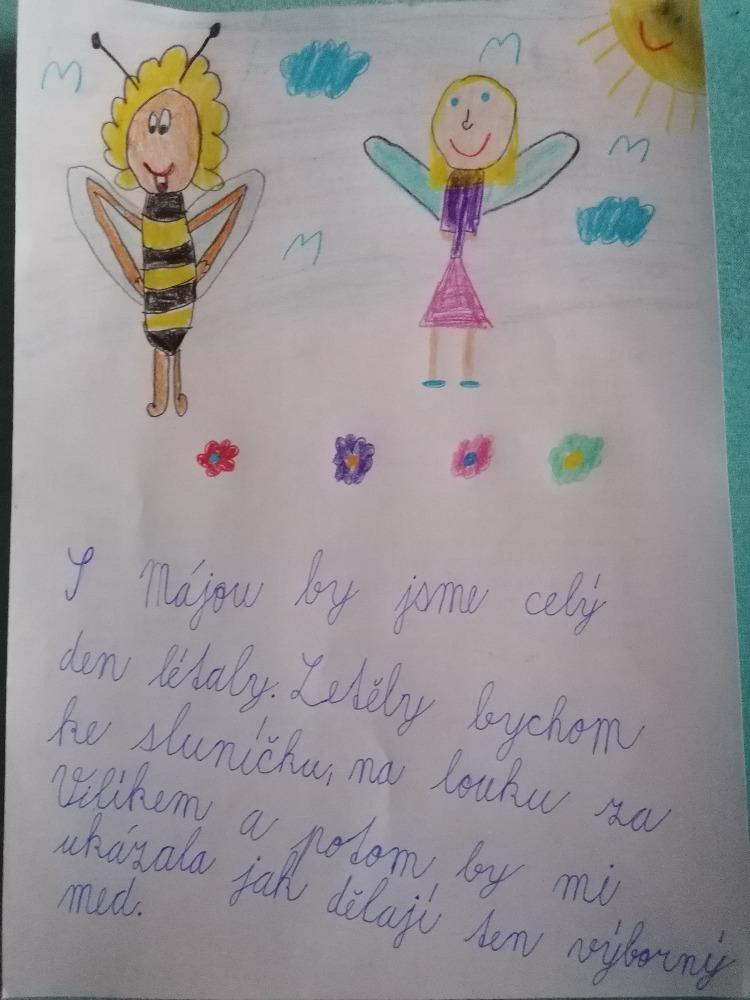 S Májou by jsme celý
den létaly. Letěly bychom
ke sluníčku, na louku za
Vilíkem a potom by mi
ukázala jak dělají ten výborný
med.